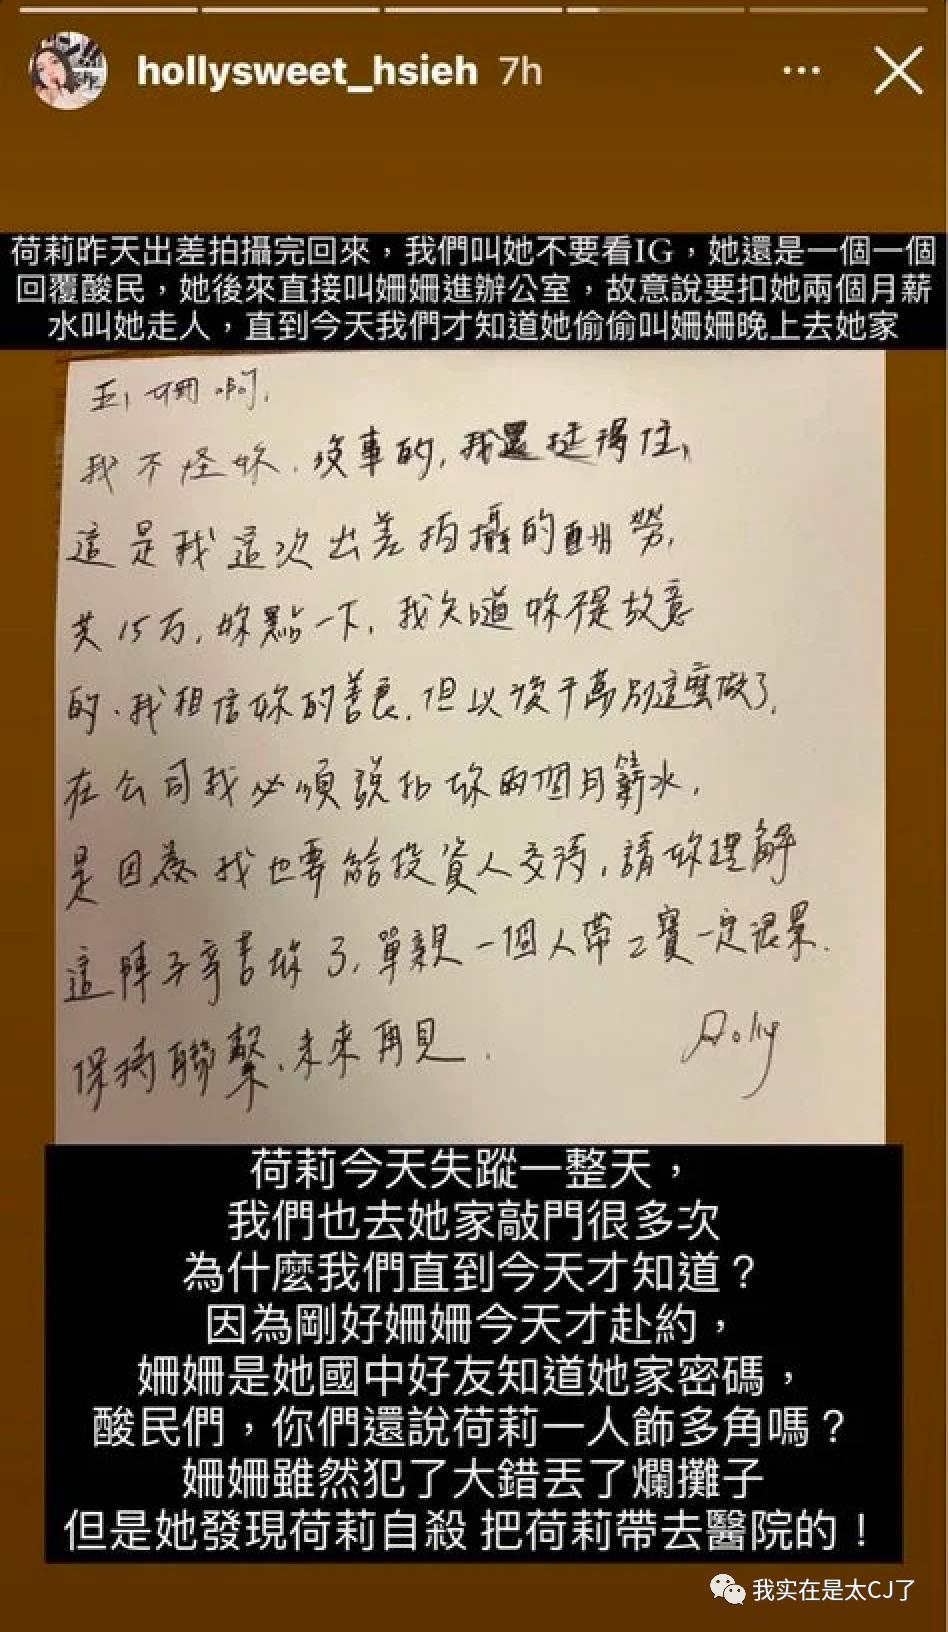 hollysweet_hsieh 7h
荷莉昨天出差拍攝完回來，我們叫她不要看IG，她還是一個一個
回覆酸民，她後來直接叫姍姍進辦公室，故意說要扣她兩個月薪
水叫她走人，直到今天我們才知道她偷偷叫姍姍晚上去她家
姍啊，
我不怪妳，沒事的，我還挺得住，
這是我這次出差拍攝的酬勞，
共15万，妳點一下，我知道妳是故意
的，我相信妳的善良，但以後千萬別這麼做了，
在公司我必須說扣妳兩個月薪水，
是因為我也要給投資人交待，請妳理解
這陣子辛苦妳了，單親一個人帶二寶一定很累，
保持聯繫，未來再見．
荷莉今天失蹤一整天，
我們也去她家敲門很多次
為什麼我們直到今天才知道？
因為剛好姍姍今天才赴約，
姍姍是她國中好友知道她家密碼，
酸民們，你們還說荷莉一人飾多角嗎？
姍姍雖然犯了大錯丟了爛攤子
但是她發現荷莉自殺 把荷莉帶去醫院的！
我实在是太CJ了